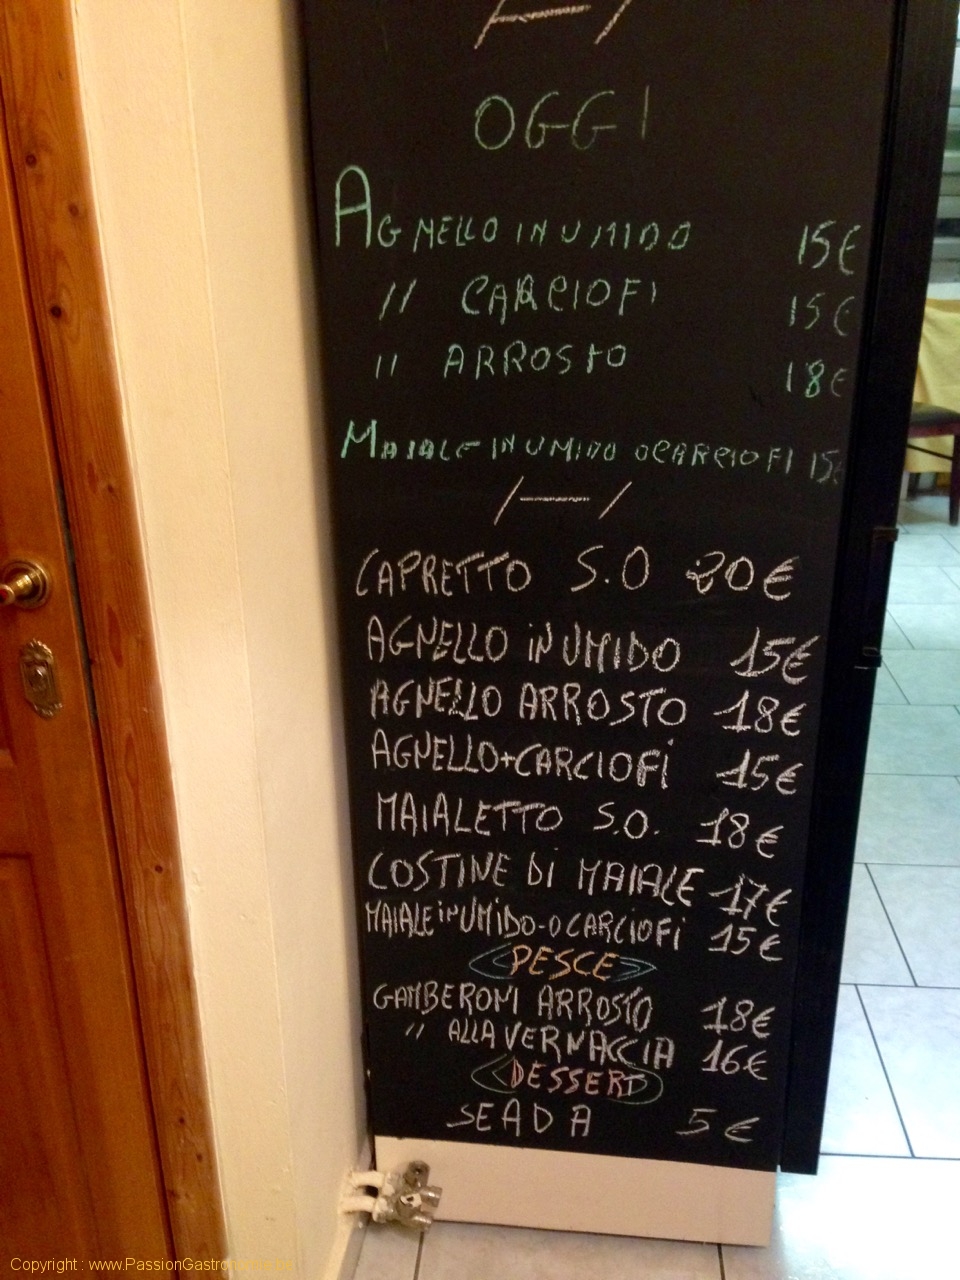 OGGI
AGNELLO IN UMIDO 15€
" CARCIOFI 15€
" ARROSTO 18€
MAIALE IN UMIDO O CARCIOFI 15€
CAPRETTO S.O 20€
AGNELLO iN UMIDO 15€
AGNELLO ARROSTO 18€
AGNELLO+CARCIOFi 15€
MAIALETTO S.O. 18€
COSTINE Di MAIALE 17€
MAIALE iN UMIDO-O CARCIOFi 15€
PESCE
GAMBERONI ARROSTO 18€
" ALLA VERNACCIA 16€
DESSERT
SEADA 5€
Copyright : www.PassionGastronomie.be